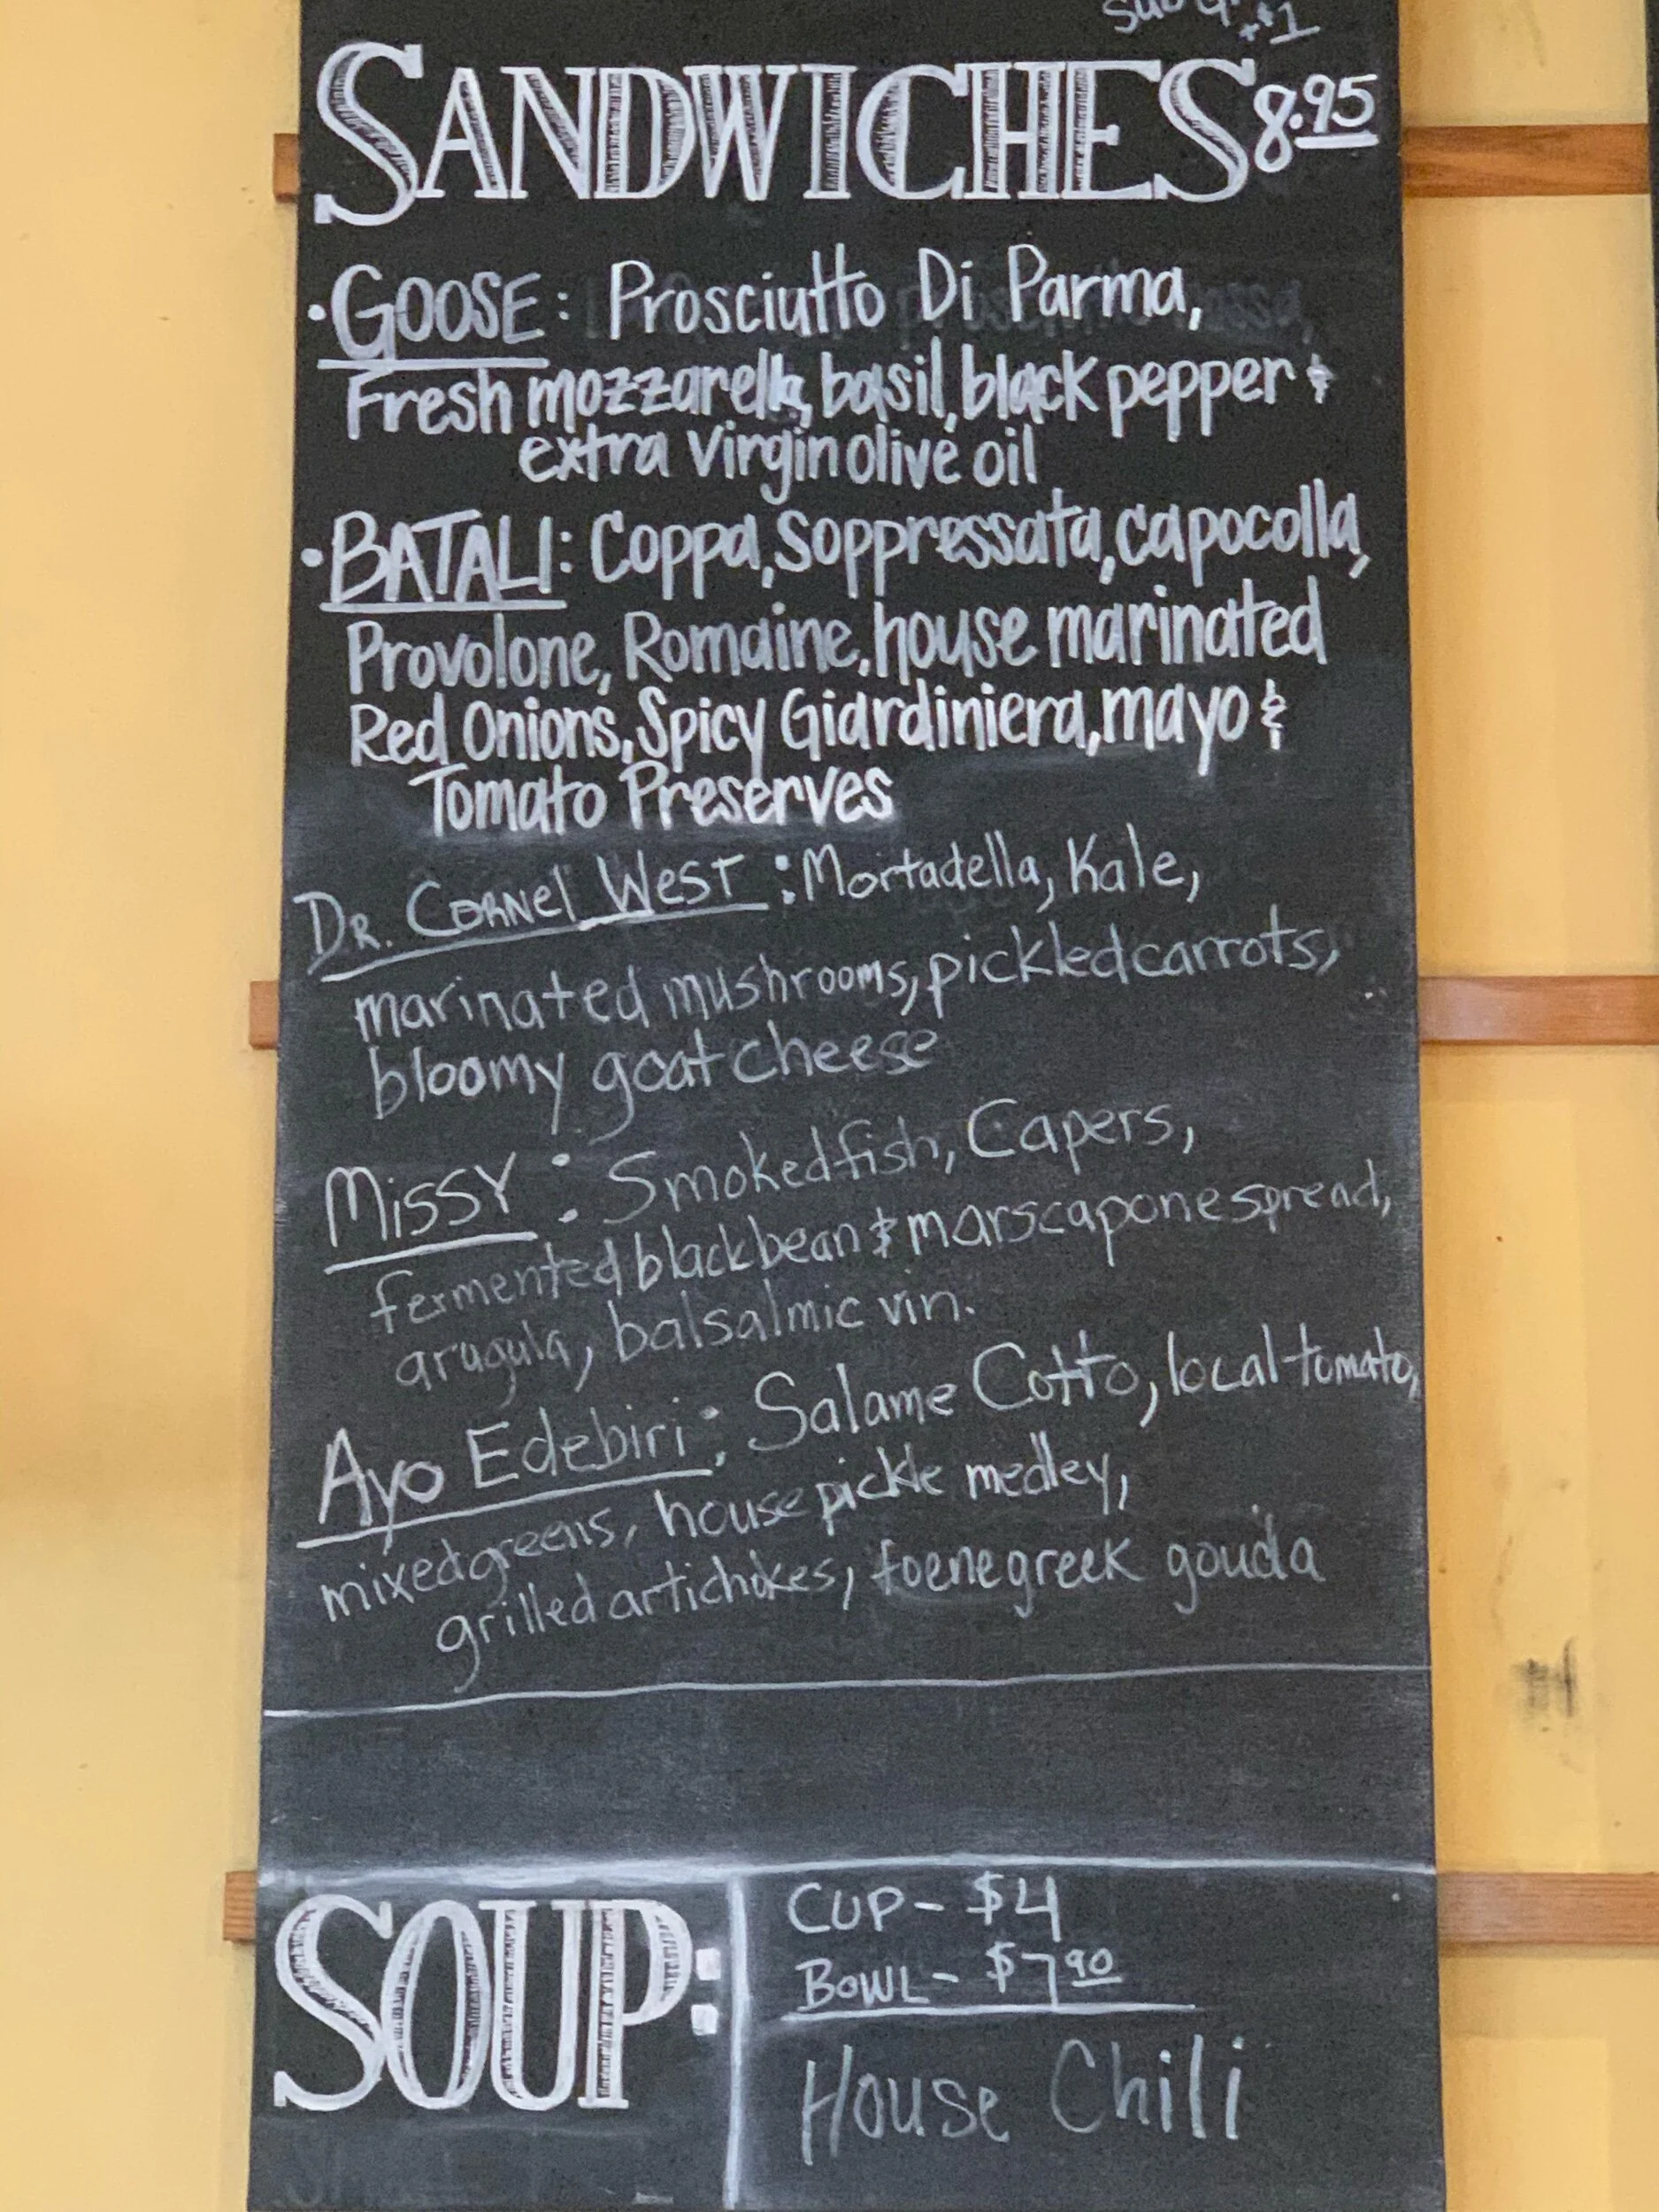 +$1
SANDWICHES 8.95
• GOOSE: Prosciutto Di Parma,
Fresh mozzarella, basil, black pepper &
extra virgin olive oil
• BATALI: Coppa, Soppressata, capocolla,
Provolone, Romaine, house marinated
Red Onions, Spicy Giardiniera, mayo &
Tomato Preserves
DR. CORNEL WEST: Mortadella, Kale,
marinated mushrooms, pickled carrots,
bloomy goat cheese
MISSY: Smoked fish, Capers,
fermented black bean & marscapone spread,
arugula, balsalmic vin.
Ayo Edebiri: Salame Cotto, local tomato,
mixed greens, house pickle medley,
grilled artichokes, foenegreek gouda
SOUP:
CUP - $4
BOWL - $7.90
House Chili